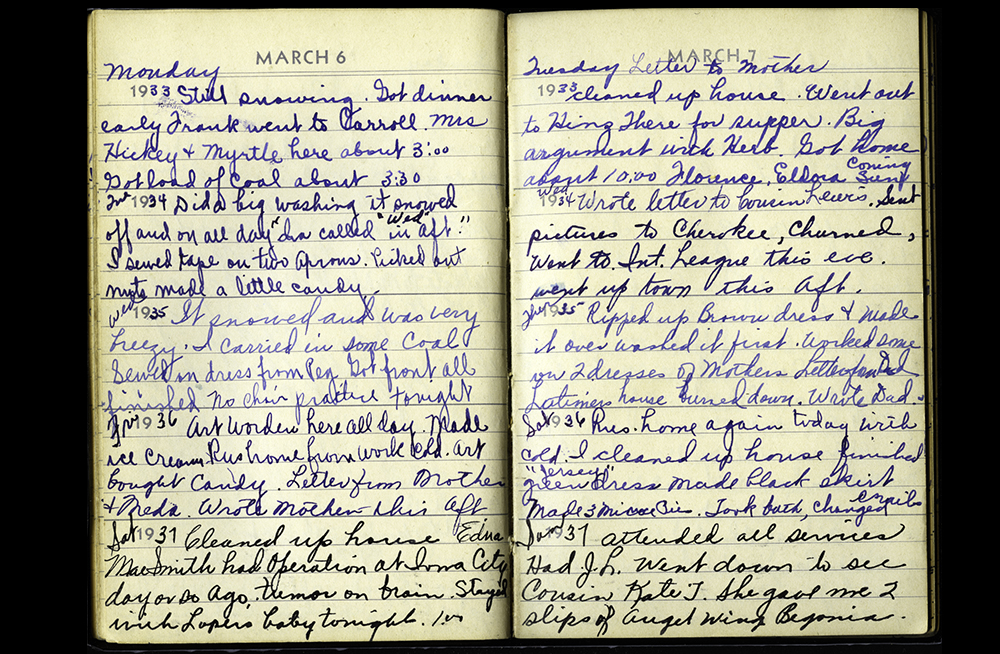 MARCH 6
Monday
1933 Still snowing. Got dinner
early Frank went to Carroll. Mrs
Hickey & Myrtle here about 3:00
Got load of Coal about 3:30
1934 Did a big washing it snowed
off and on all day "Ira called "Wed" in aft."
I sewed tape on two aprons. Picked out
nuts made a little candy.
Wed 1935 It snowed and was very
breezy. I carried in some Coal
Sewed on dress from Peg Got front all
finished No choir practice tonight
Fri 1936 Art Worden here all day. Made
ice cream. Rus home from work cold. Art
bought Candy. Letter from Mother
& Meda. Wrote Mother this aft
Sat 1937 Cleaned up house Edna
Mae Smith had Operation at Iowa City
day or so ago, tumor on brain. Stayed
with Lopers baby tonight. 1.00
MARCH 7
Tuesday Letter to Mother
1933 cleaned up house. Went out
to King There for supper. Big
argument with Herb. Got home
about 10:00 Florence, Eldora Coming
Wed 1934 Wrote letter to Cousin Lewis. Sent
pictures to Cherokee, Churned,
Went to Int. League this eve.
went up town this Aft.
1935 Ripped up Brown dress & made
it over washed it first. Worked some
on 2 dresses of Mothers Letter from Dad
Latimers house burned down. Wrote Dad.
Sat 1936 Rus. home again today with
cold. I cleaned up house finished
"Jersey"
green dress made black skirt
Made 3 Mince Pies. Took bath, changed
Sun 1937 attended all services
Had J.L. Went down to see
Cousin Kate T. She gave me 2
slips of Angel Wing Begonia.